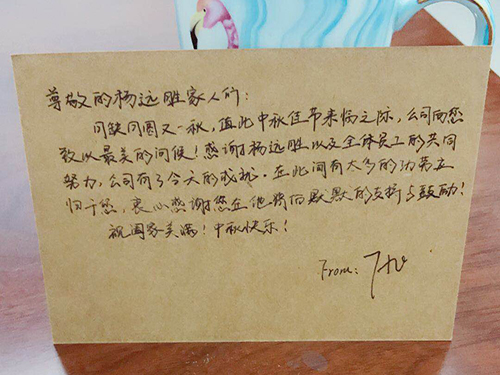 尊敬的杨远胜家人们:
月缺月圆又一秋,值此中秋佳节来临之际,公司向您
致以最美的问候!感谢杨远胜以及全体员工的共同
努力,公司有了今天的成就。在此间有太多的功劳应
归于您,衷心感谢您在他背后默默的支持与鼓励!
祝阖家美满!中秋快乐!
From: